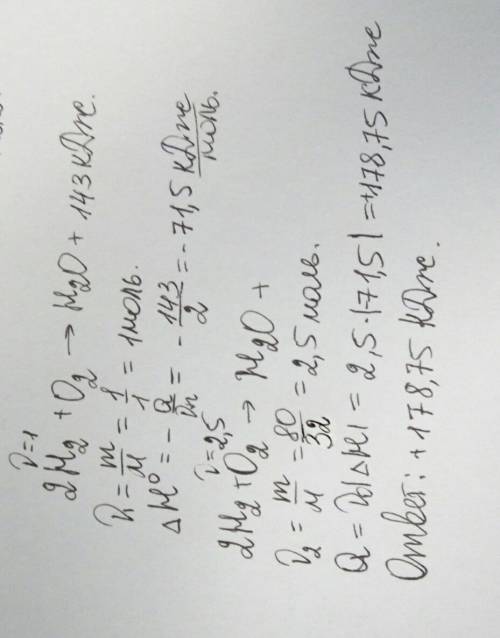 ν=1
2H₂ + O₂ → H₂O + 143 кДж.
ν₁ = m/M = 1/1 = 1 моль.
ΔH⁰ = - Q/ν₁ = - 143/2 = - 71,5 кДж/моль.
ν=2,5
2H₂ + O₂ → H₂O +
ν₂ = m/M = 80/32 = 2,5 моль.
Q = ν₂|ΔH| = 2,5·|71,5| = +178,75 кДж
Ответ: + 178,75 кДж.